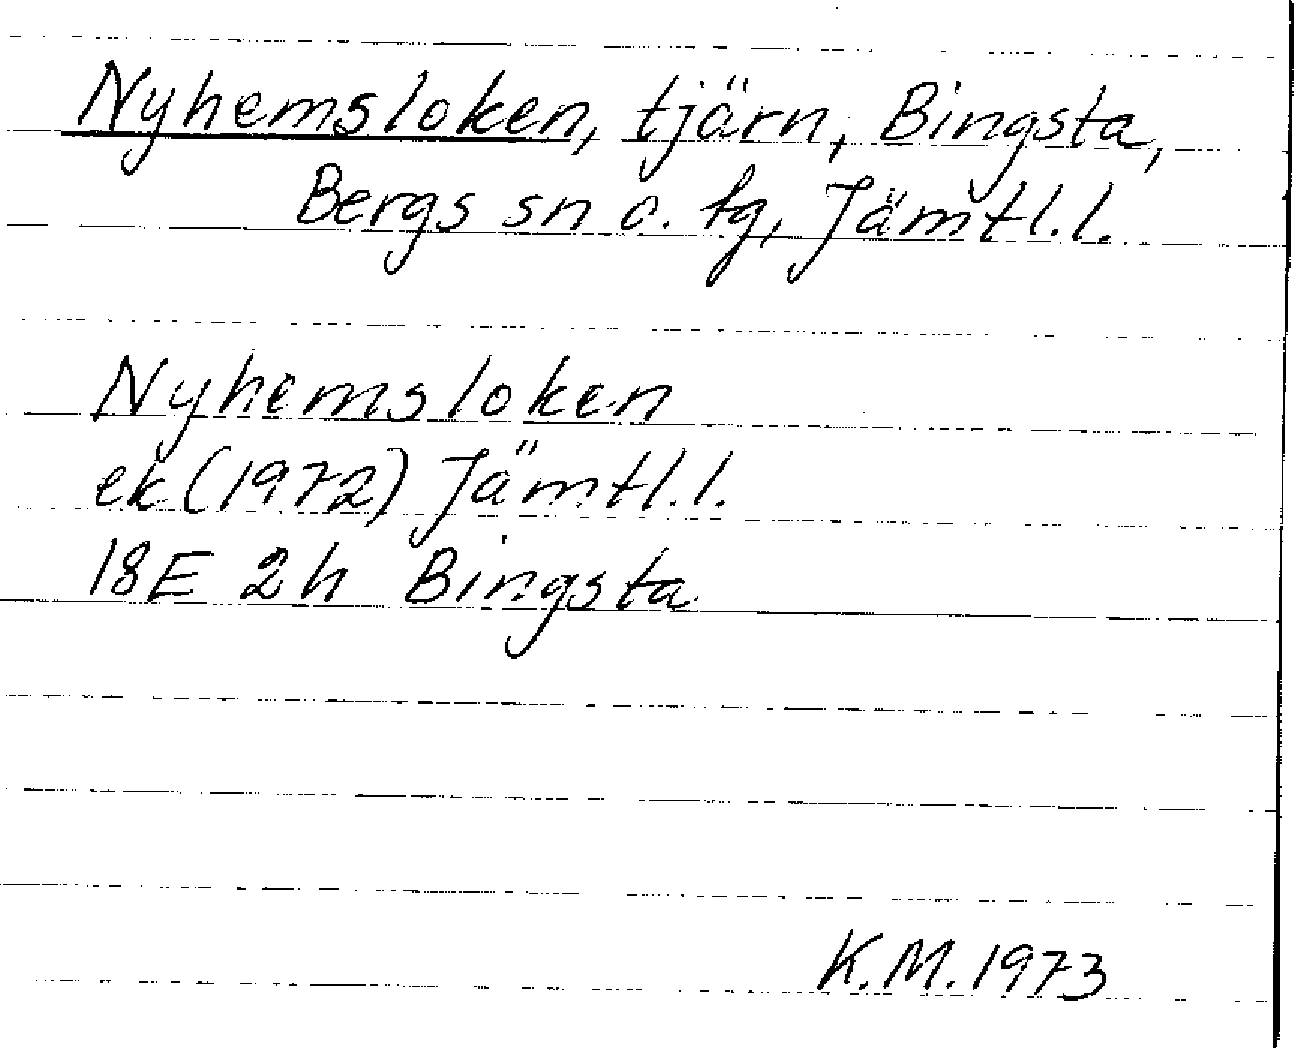 Nyhemsloken, tjärn, Bingsta,
Bergs sn o. tg, Jämtl.l.
Nyhemsloken
ek (1972) Jämtl.l.
18E 2h Bingsta
K.M. 1973